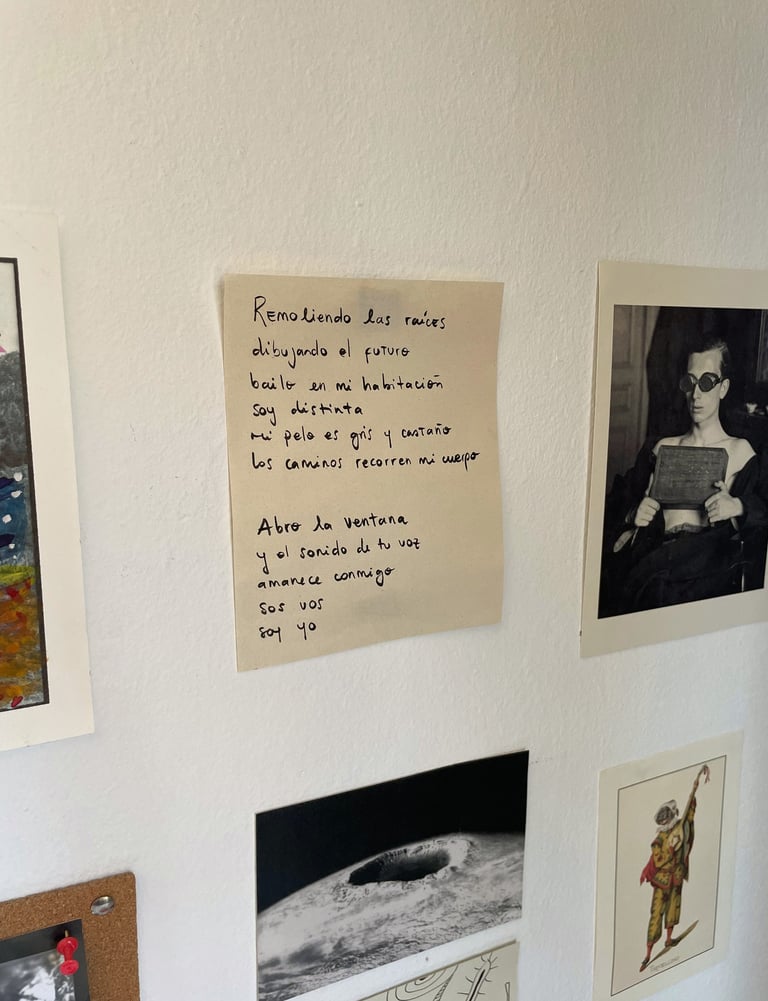 Remoliendo las raíces
dibujando el futuro
bailo en mi habitación
soy distinta
mi pelo es gris y castaño
los caminos recorren mi cuerpo
Abro la ventana
y el sonido de tu voz
amanece conmigo
sos vos
soy yo